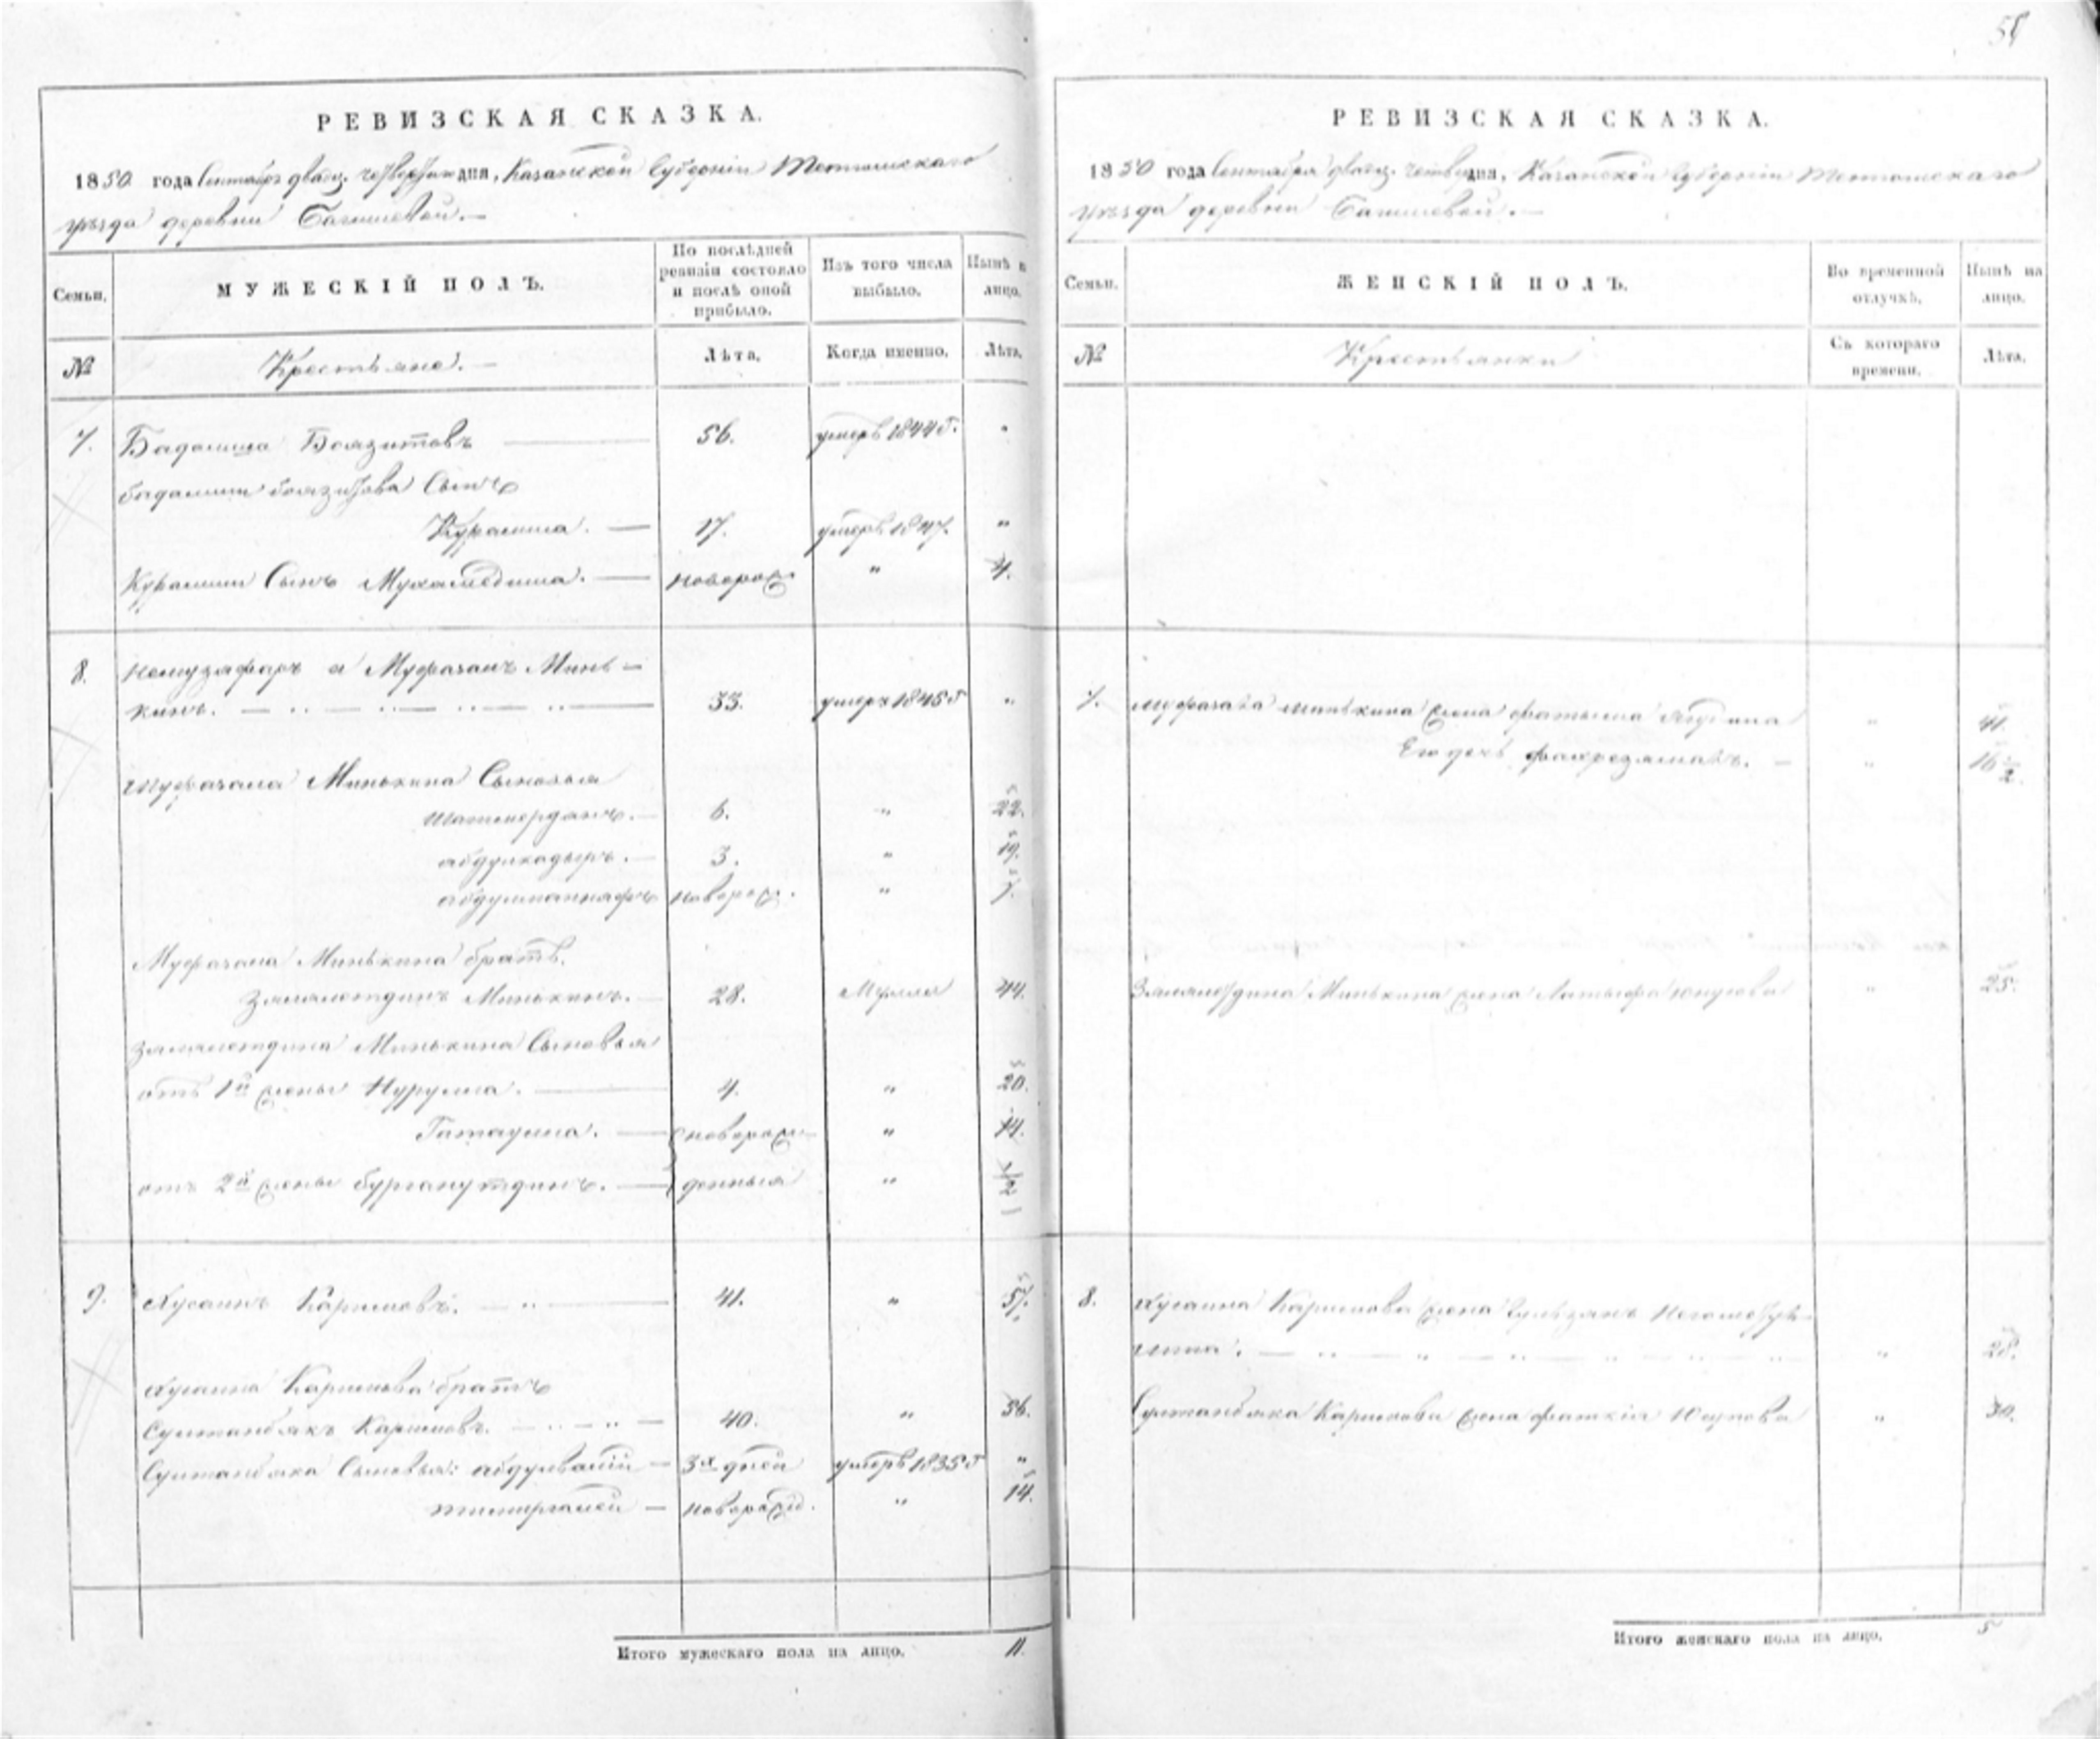 РЕВИЗСКАЯ СКАЗКА.
1850 года Сентября двадц. четвертаго дня, Казанской Губерніи Тетюшскаго
уѣзда деревни
Семьи.
МУЖЕСКІЙ ПОЛЪ.
По послѣдней ревизіи состояло и послѣ оной прибыло.
Изъ того числа выбыло.
Нынѣ на лицо.
№
Крестьяне.
Лѣта.
Когда именно.
Лѣта.
7. Бадамша Боязитовъ 56. умеръ 1844 г. "
Бадамши Боязитова Сынъ
Курамша. 17. умеръ 1847. "
Курамши Сынъ Мухаметша. новорож. " 4.
8. а Муфазалъ Минь-
кинъ. 33. умеръ 1845 г "
Муфазала Минькина Сыновья
6. " 22.
абдулкадыръ. 3. " 19.
новорож. "
Муфазала Минькина братъ.
Залялетдинъ Минькинъ. 28. Мулла 44.
Залялетдина Минькина Сыновья
отъ 1й жены Нурулла. 4. " 20.
Гатаулла. новорож- " 14.
отъ 2й жены бурганутдинъ. денныя "
9. Хусаинъ Каримовъ. 41. " 57.
Хусаина Каримова братъ
Султанбякъ Каримовъ. 40. " 56.
Султанбяка Сыновья: 3х дней умеръ 1835 г "
новорожд. " 14.
Итого мужескаго пола на лицо. 11.
РЕВИЗСКАЯ СКАЗКА.
1850 года Сентября двадц. четвер дня, Казанской Губерніи Тетюшскаго
уѣзда деревни
Семьи.
ЖЕНСКІЙ ПОЛЪ.
Во временной отлучкѣ.
Нынѣ на лицо.
№
Крестьянки
Съ котораго времени.
Лѣта.
7. Муфазала Минькина жена " 41.
Его дочь " 16½.
Залялетдина Минькина жена Латыфа Юнусова " 25.
8. Хусаина Каримова жена
" 28.
Султанбяка Каримова жена " 30.
Итого женскаго пола на лицо. 5